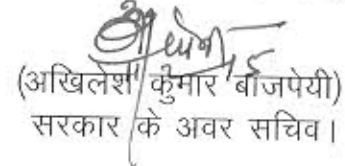 (अखिलेश कुमार बाजपेयी)
सरकार के अवर सचिव।